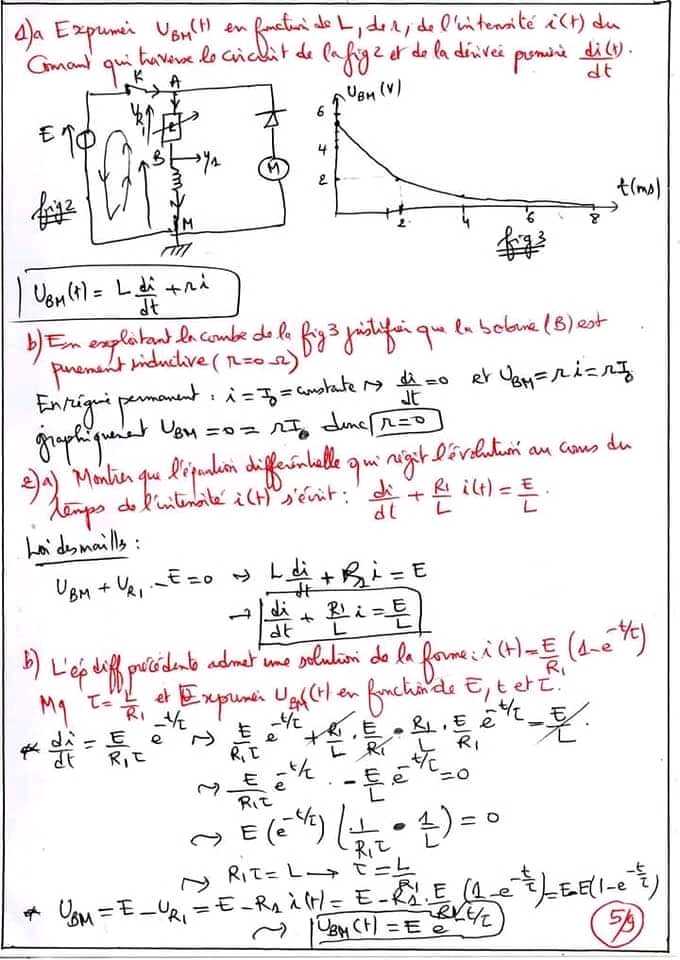 1)a Exprimer U_BM(t) en fonction de L, de r, de l'intensité i(t) du
Courant qui traverse le circuit de la fig 2 et de la dérivée première di(t)/dt.
K A
E U_R1 R
B y1
fig2
M
M
U_BM(V)
6
4
2
2 4 6 8 t(ms)
fig3
U_BM(t) = L di/dt + r i
b) En exploitant la courbe de la fig 3 justifier que la bobine (B) est
purement inductive (r=0 Ω)
En régime permanent : i = I0 = constante → di/dt = 0 et U_BM = r i = r I0
graphiquement U_BM = 0 = r I0 donc r = 0
2)a) Montrer que l'équation différentielle qui régit l'évolution au cours du
temps de l'intensité i(t) s'écrit : di/dt + R1/L i(t) = E/L.
Loi des mailles :
U_BM + U_R1 - E = 0 → L di/dt + R1 i = E
→ di/dt + R1/L i = E/L
b) L'éq diff précédente admet une solution de la forme : i(t) = E/R1 (1-e^-t/τ)
Mq τ = L/R1 et Exprimer U_BM(t) en fonction de E, t et τ.
* di/dt = E/R1τ e^-t/τ → E/R1τ e^-t/τ + R1/L . E/R1 - R1/L . E/R1 e^-t/τ = E/L.
→ E/R1τ e^-t/τ - E/L e^-t/τ = 0
→ E (e^-t/τ) (1/R1τ - 1/L) = 0
→ R1τ = L → τ = L/R1
* U_BM = E - U_R1 = E - R1 i(t) = E - R1 . E/R1 (1-e^-t/τ) = E - E(1-e^-t/τ)
→ U_BM(t) = E e^-t/τ
5/9